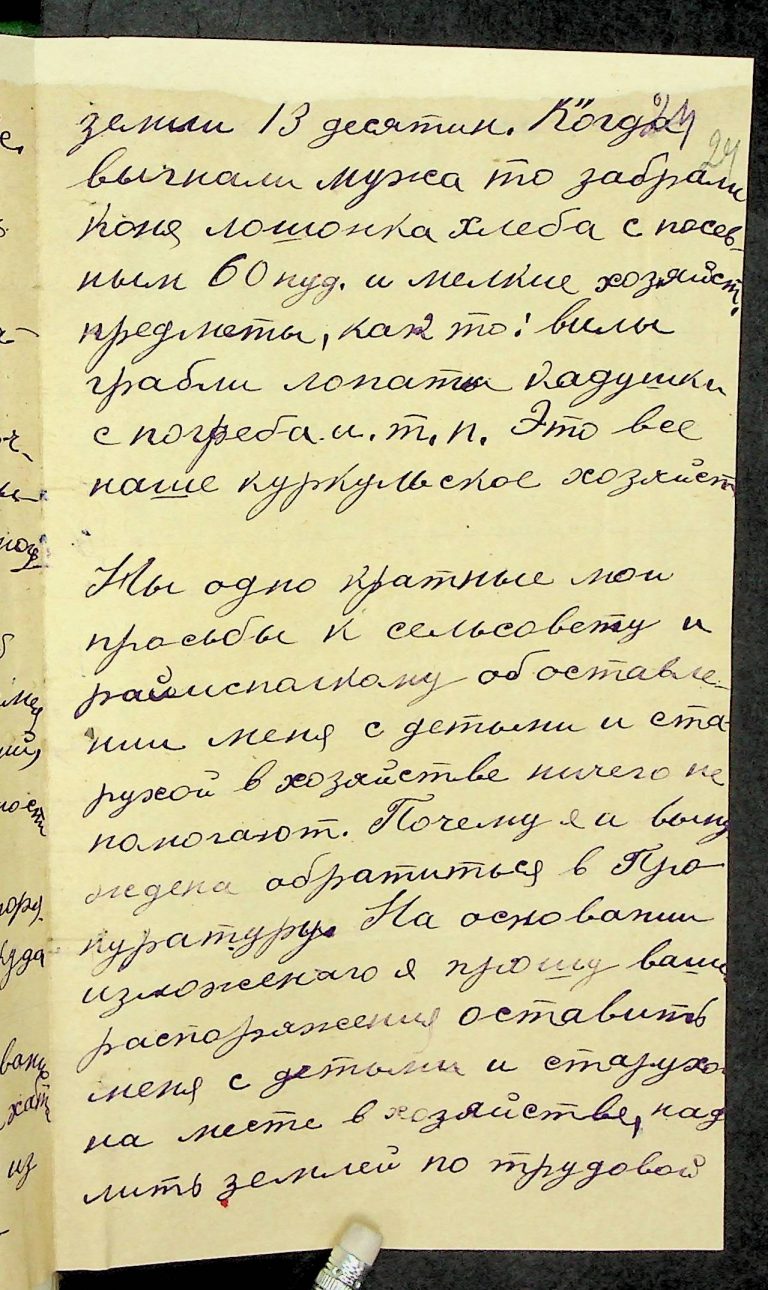 24
24
земли 13 десятин. Когда
выгнали мужа то забрали
коня лошонка хлеба с посев-
ным 60 пуд. и мелкие хозяйст.
предметы, как то: вилы
грабли лопаты кадушки
с погреба и. т. п. Это все
наше куркульское хозяйст
одно кратные мои
просьбы к сельсовету и
райисполкому об оставле-
нии меня с детьми и ста-
рухой в хозяйстве ничего не
помогают. Почему я и выну
ждена обратиться в Про
куратуру. На основании
изложенаго я прошу ваше
распоряжения оставить
меня с детьми и старухо
на месте в хозяйстве, над
лить землей по трудовой